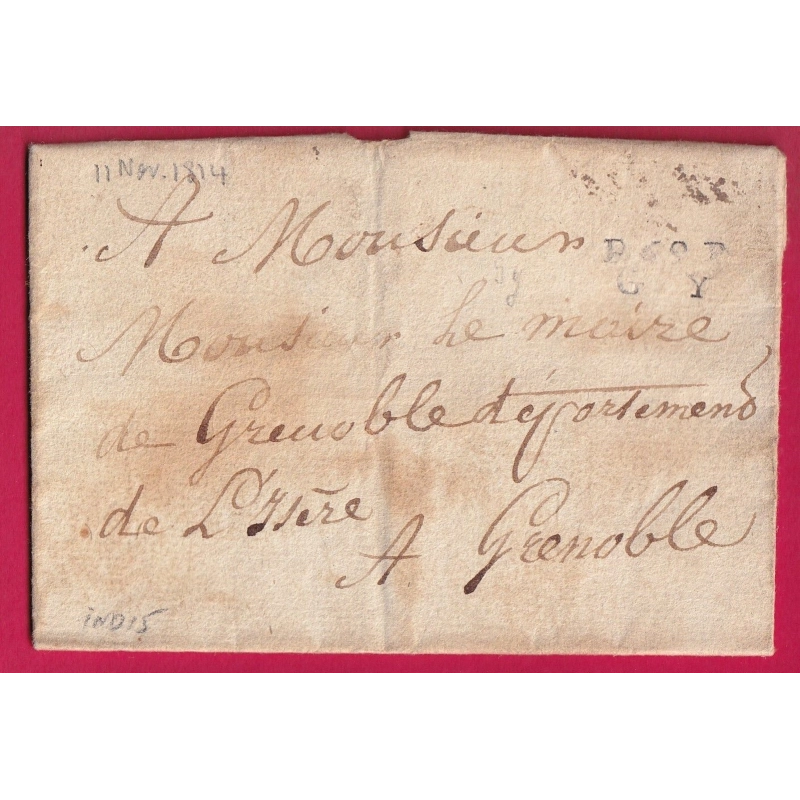 11 Nov. 1814
A Monsieur
P69P
G Y
Monsieur le maire
de Grenoble département
de L'Isère
A Grenoble
IND 15